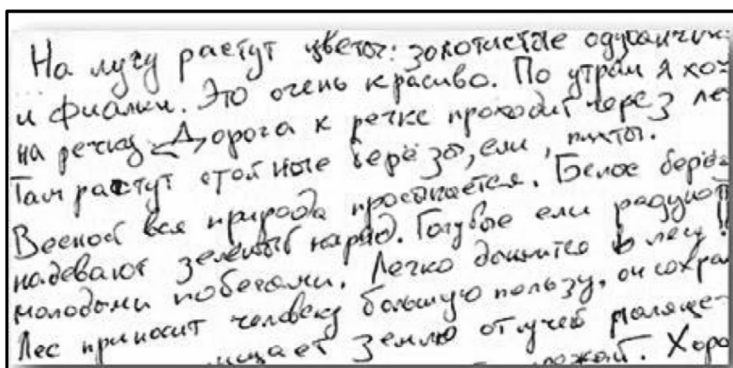 На лугу растут цветы: золотистые одуванчики
и фиалки. Это очень красиво. По утрам я хо
на речку. Дорога к речке проходит через ле
Там растут стойные берёзы, ели, пихты.
Весной вся природа просыпается. Белые берёз
надевают зелёный наряд. Голубые ели радуют
молодыми побегами. Легко дышится в лесу!
Лес приносит человеку большую пользу, он сохра
щает землю от лучей паляще
Хоро